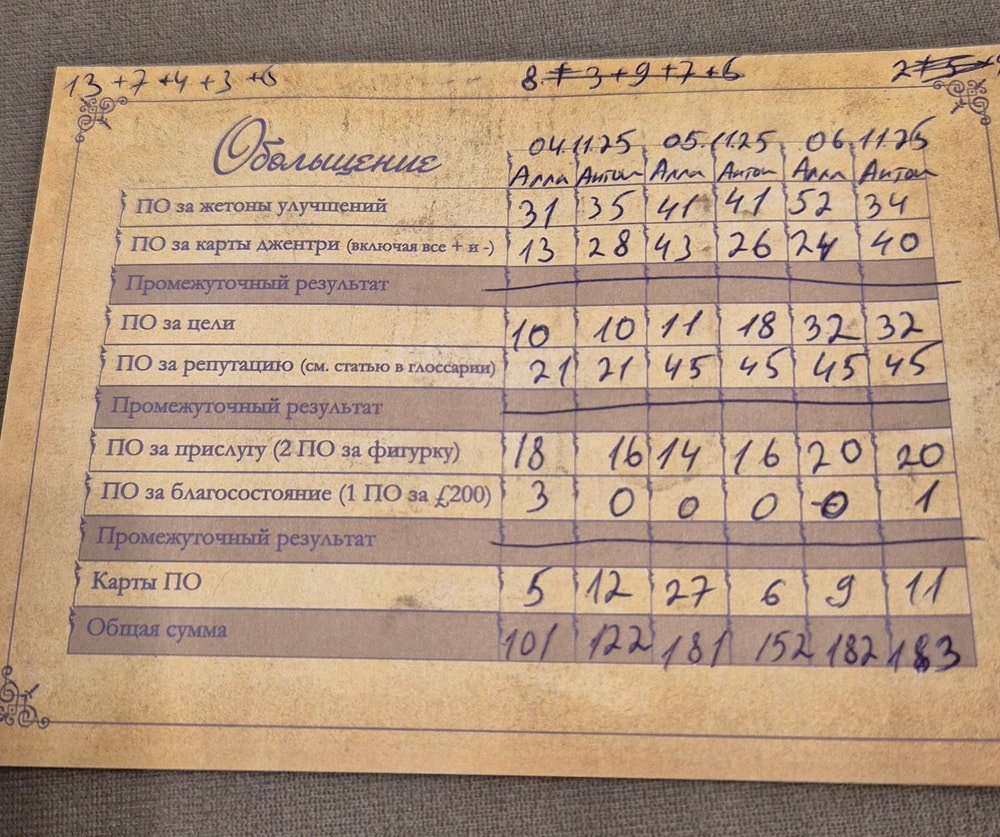 13 +7 +4 +3 +6 8 + 3+9+7+6
Обольщение 04.11.25 05.11.25 06.11.25
Алла Антон Алла Антон Алла Антон
ПО за жетоны улучшений 31 35 41 41 52 34
ПО за карты джентри (включая все + и -) 13 28 43 26 24 40
Промежуточный результат
ПО за цели 10 10 11 18 32 32
ПО за репутацию (см. статью в глоссарии) 21 21 45 45 45 45
Промежуточный результат
ПО за прислугу (2 ПО за фигурку) 18 16 14 16 20 20
ПО за благосостояние (1 ПО за £200) 3 0 0 0 0 1
Промежуточный результат
Карты ПО 5 12 27 6 9 11
Общая сумма 101 122 181 152 182 183